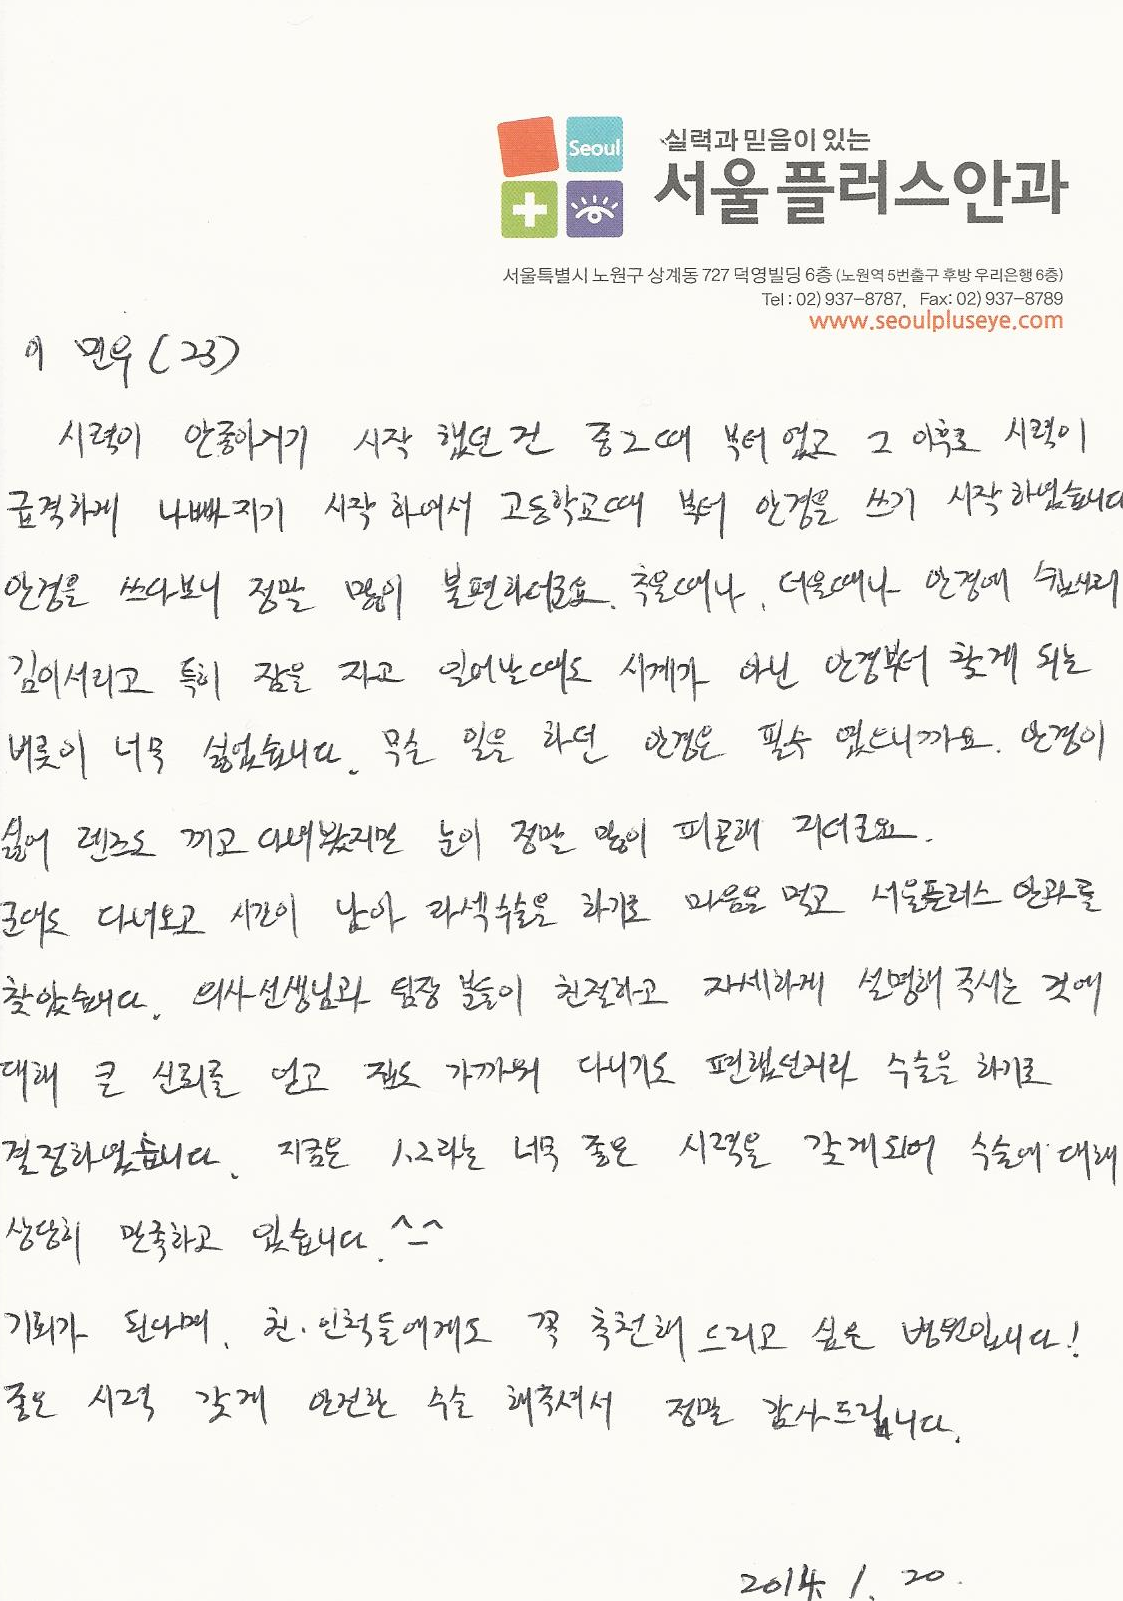 Seoul
실력과 믿음이 있는
서울플러스안과
서울특별시 노원구 상계동 727 덕영빌딩 6층 (노원역 5번출구 후방 우리은행 6층)
Tel : 02) 937-8787, Fax: 02) 937-8789
www.seoulpluseye.com
이 민우 (23)
시력이 안좋아지기 시작 했던 건 중2때 부터 였고 그 이후로 시력이
급격하게 나빠지기 시작 하여서 고등학교때 부터 안경을 쓰기 시작하였습니다
안경을 쓰다보니 정말 많이 불편하더군요. 추울때나, 더울때나 안경에
김이서리고 특히 잠을 자고 일어날때도 시계가 아닌 안경부터 찾게 되는
버릇이 너무 싫었습니다. 무슨 일을 하던 안경은 필수 였으니까요. 안경이
싫어 렌즈도 끼고 다녀봤지만 눈이 정말 많이 피곤해 지더군요.
군대도 다녀오고 시간이 남아 라섹수술을 하기로 마음을 먹고 서울플러스 안과를
찾았습니다. 의사선생님과 팀장 분들이 친절하고 자세하게 설명해 주시는 것에
대해 큰 신뢰를 얻고 집도 가까워 다니기도 편했던지라 수술을 하기로
결정하였습니다. 지금은 1.2라는 너무 좋은 시력을 갖게되어 수술에 대해
상당히 만족하고 있습니다. ^_^
기회가 된다면, 친·인척들에게도 꼭 추천해 드리고 싶은 병원입니다!
좋은 시력 갖게 안전한 수술 해주셔서 정말 감사드립니다.
2014. 1. 20.